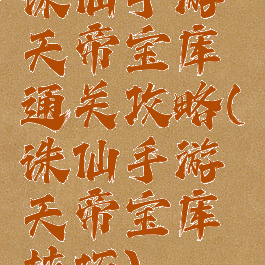 诛仙手游
天帝宝库
通关攻略(
诛仙手游
天帝宝库